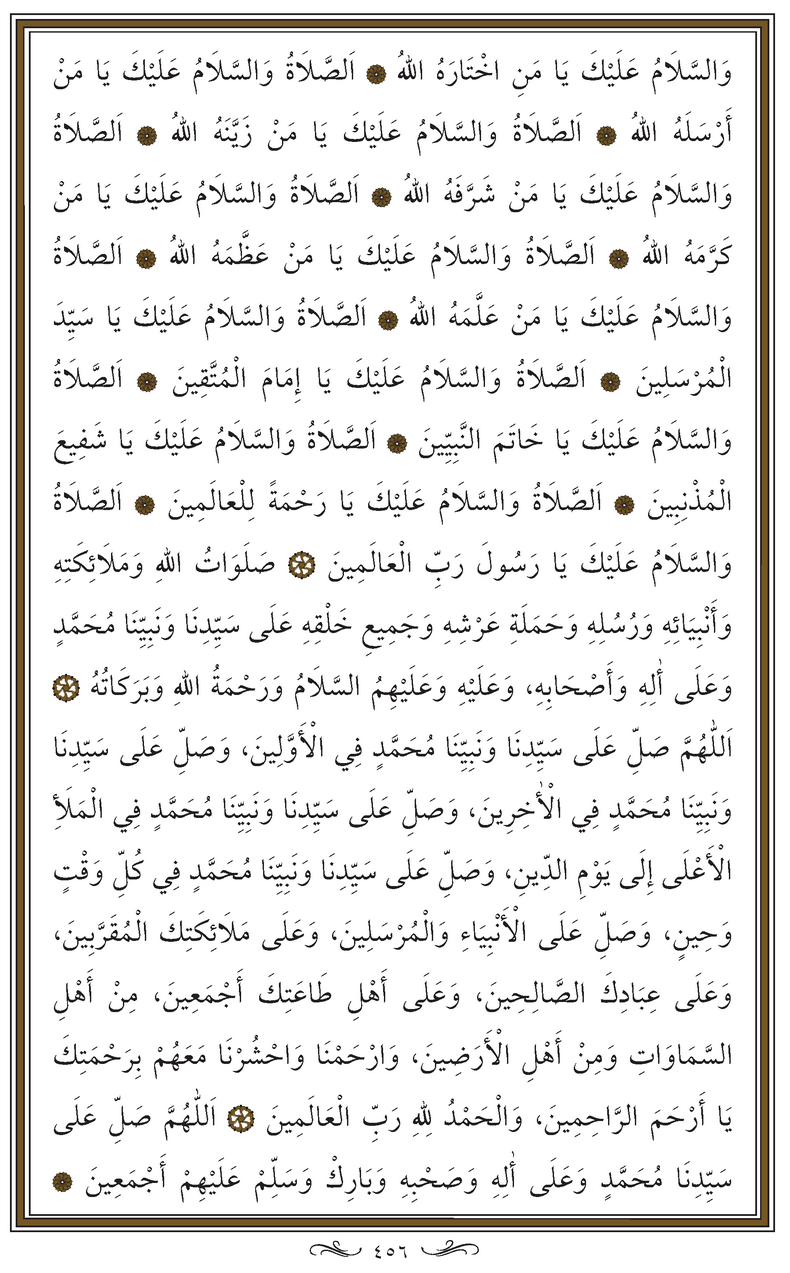 وَالسَّلَامُ عَلَيْكَ يَا مَنِ اخْتَارَهُ اللهُ ۞ اَلصَّلَاةُ وَالسَّلَامُ عَلَيْكَ يَا مَنْ
أَرْسَلَهُ اللهُ ۞ اَلصَّلَاةُ وَالسَّلَامُ عَلَيْكَ يَا مَنْ زَيَّنَهُ اللهُ ۞ اَلصَّلَاةُ
وَالسَّلَامُ عَلَيْكَ يَا مَنْ شَرَّفَهُ اللهُ ۞ اَلصَّلَاةُ وَالسَّلَامُ عَلَيْكَ يَا مَنْ
كَرَّمَهُ اللهُ ۞ اَلصَّلَاةُ وَالسَّلَامُ عَلَيْكَ يَا مَنْ عَظَّمَهُ اللهُ ۞ اَلصَّلَاةُ
وَالسَّلَامُ عَلَيْكَ يَا مَنْ عَلَّمَهُ اللهُ ۞ اَلصَّلَاةُ وَالسَّلَامُ عَلَيْكَ يَا سَيِّدَ
الْمُرْسَلِينَ ۞ اَلصَّلَاةُ وَالسَّلَامُ عَلَيْكَ يَا إِمَامَ الْمُتَّقِينَ ۞ اَلصَّلَاةُ
وَالسَّلَامُ عَلَيْكَ يَا خَاتَمَ النَّبِيِّينَ ۞ اَلصَّلَاةُ وَالسَّلَامُ عَلَيْكَ يَا شَفِيعَ
الْمُذْنِبِينَ ۞ اَلصَّلَاةُ وَالسَّلَامُ عَلَيْكَ يَا رَحْمَةً لِلْعَالَمِينَ ۞ اَلصَّلَاةُ
وَالسَّلَامُ عَلَيْكَ يَا رَسُولَ رَبِّ الْعَالَمِينَ ۞ صَلَوَاتُ اللهِ وَمَلَائِكَتِهِ
وَأَنْبِيَائِهِ وَرُسُلِهِ وَحَمَلَةِ عَرْشِهِ وَجَمِيعِ خَلْقِهِ عَلَى سَيِّدِنَا وَنَبِيِّنَا مُحَمَّدٍ
وَعَلَى أٰلِهِ وَأَصْحَابِهِ، وَعَلَيْهِ وَعَلَيْهِمُ السَّلَامُ وَرَحْمَةُ اللهِ وَبَرَكَاتُهُ ۞
اَللّٰهُمَّ صَلِّ عَلَى سَيِّدِنَا وَنَبِيِّنَا مُحَمَّدٍ فِي الْأَوَّلِينَ، وَصَلِّ عَلَى سَيِّدِنَا
وَنَبِيِّنَا مُحَمَّدٍ فِي الْأٰخِرِينَ، وَصَلِّ عَلَى سَيِّدِنَا وَنَبِيِّنَا مُحَمَّدٍ فِي الْمَلَأِ
الْأَعْلَى إِلَى يَوْمِ الدِّينِ، وَصَلِّ عَلَى سَيِّدِنَا وَنَبِيِّنَا مُحَمَّدٍ فِي كُلِّ وَقْتٍ
وَحِينٍ، وَصَلِّ عَلَى الْأَنْبِيَاءِ وَالْمُرْسَلِينَ، وَعَلَى مَلَائِكَتِكَ الْمُقَرَّبِينَ،
وَعَلَى عِبَادِكَ الصَّالِحِينَ، وَعَلَى أَهْلِ طَاعَتِكَ أَجْمَعِينَ، مِنْ أَهْلِ
السَّمَاوَاتِ وَمِنْ أَهْلِ الْأَرَضِينَ، وَارْحَمْنَا وَاحْشُرْنَا مَعَهُمْ بِرَحْمَتِكَ
يَا أَرْحَمَ الرَّاحِمِينَ، وَالْحَمْدُ لِلّٰهِ رَبِّ الْعَالَمِينَ ۞ اَللّٰهُمَّ صَلِّ عَلَى
سَيِّدِنَا مُحَمَّدٍ وَعَلَى أٰلِهِ وَصَحْبِهِ وَبَارِكْ وَسَلِّمْ عَلَيْهِمْ أَجْمَعِينَ ۞
٤٥٦